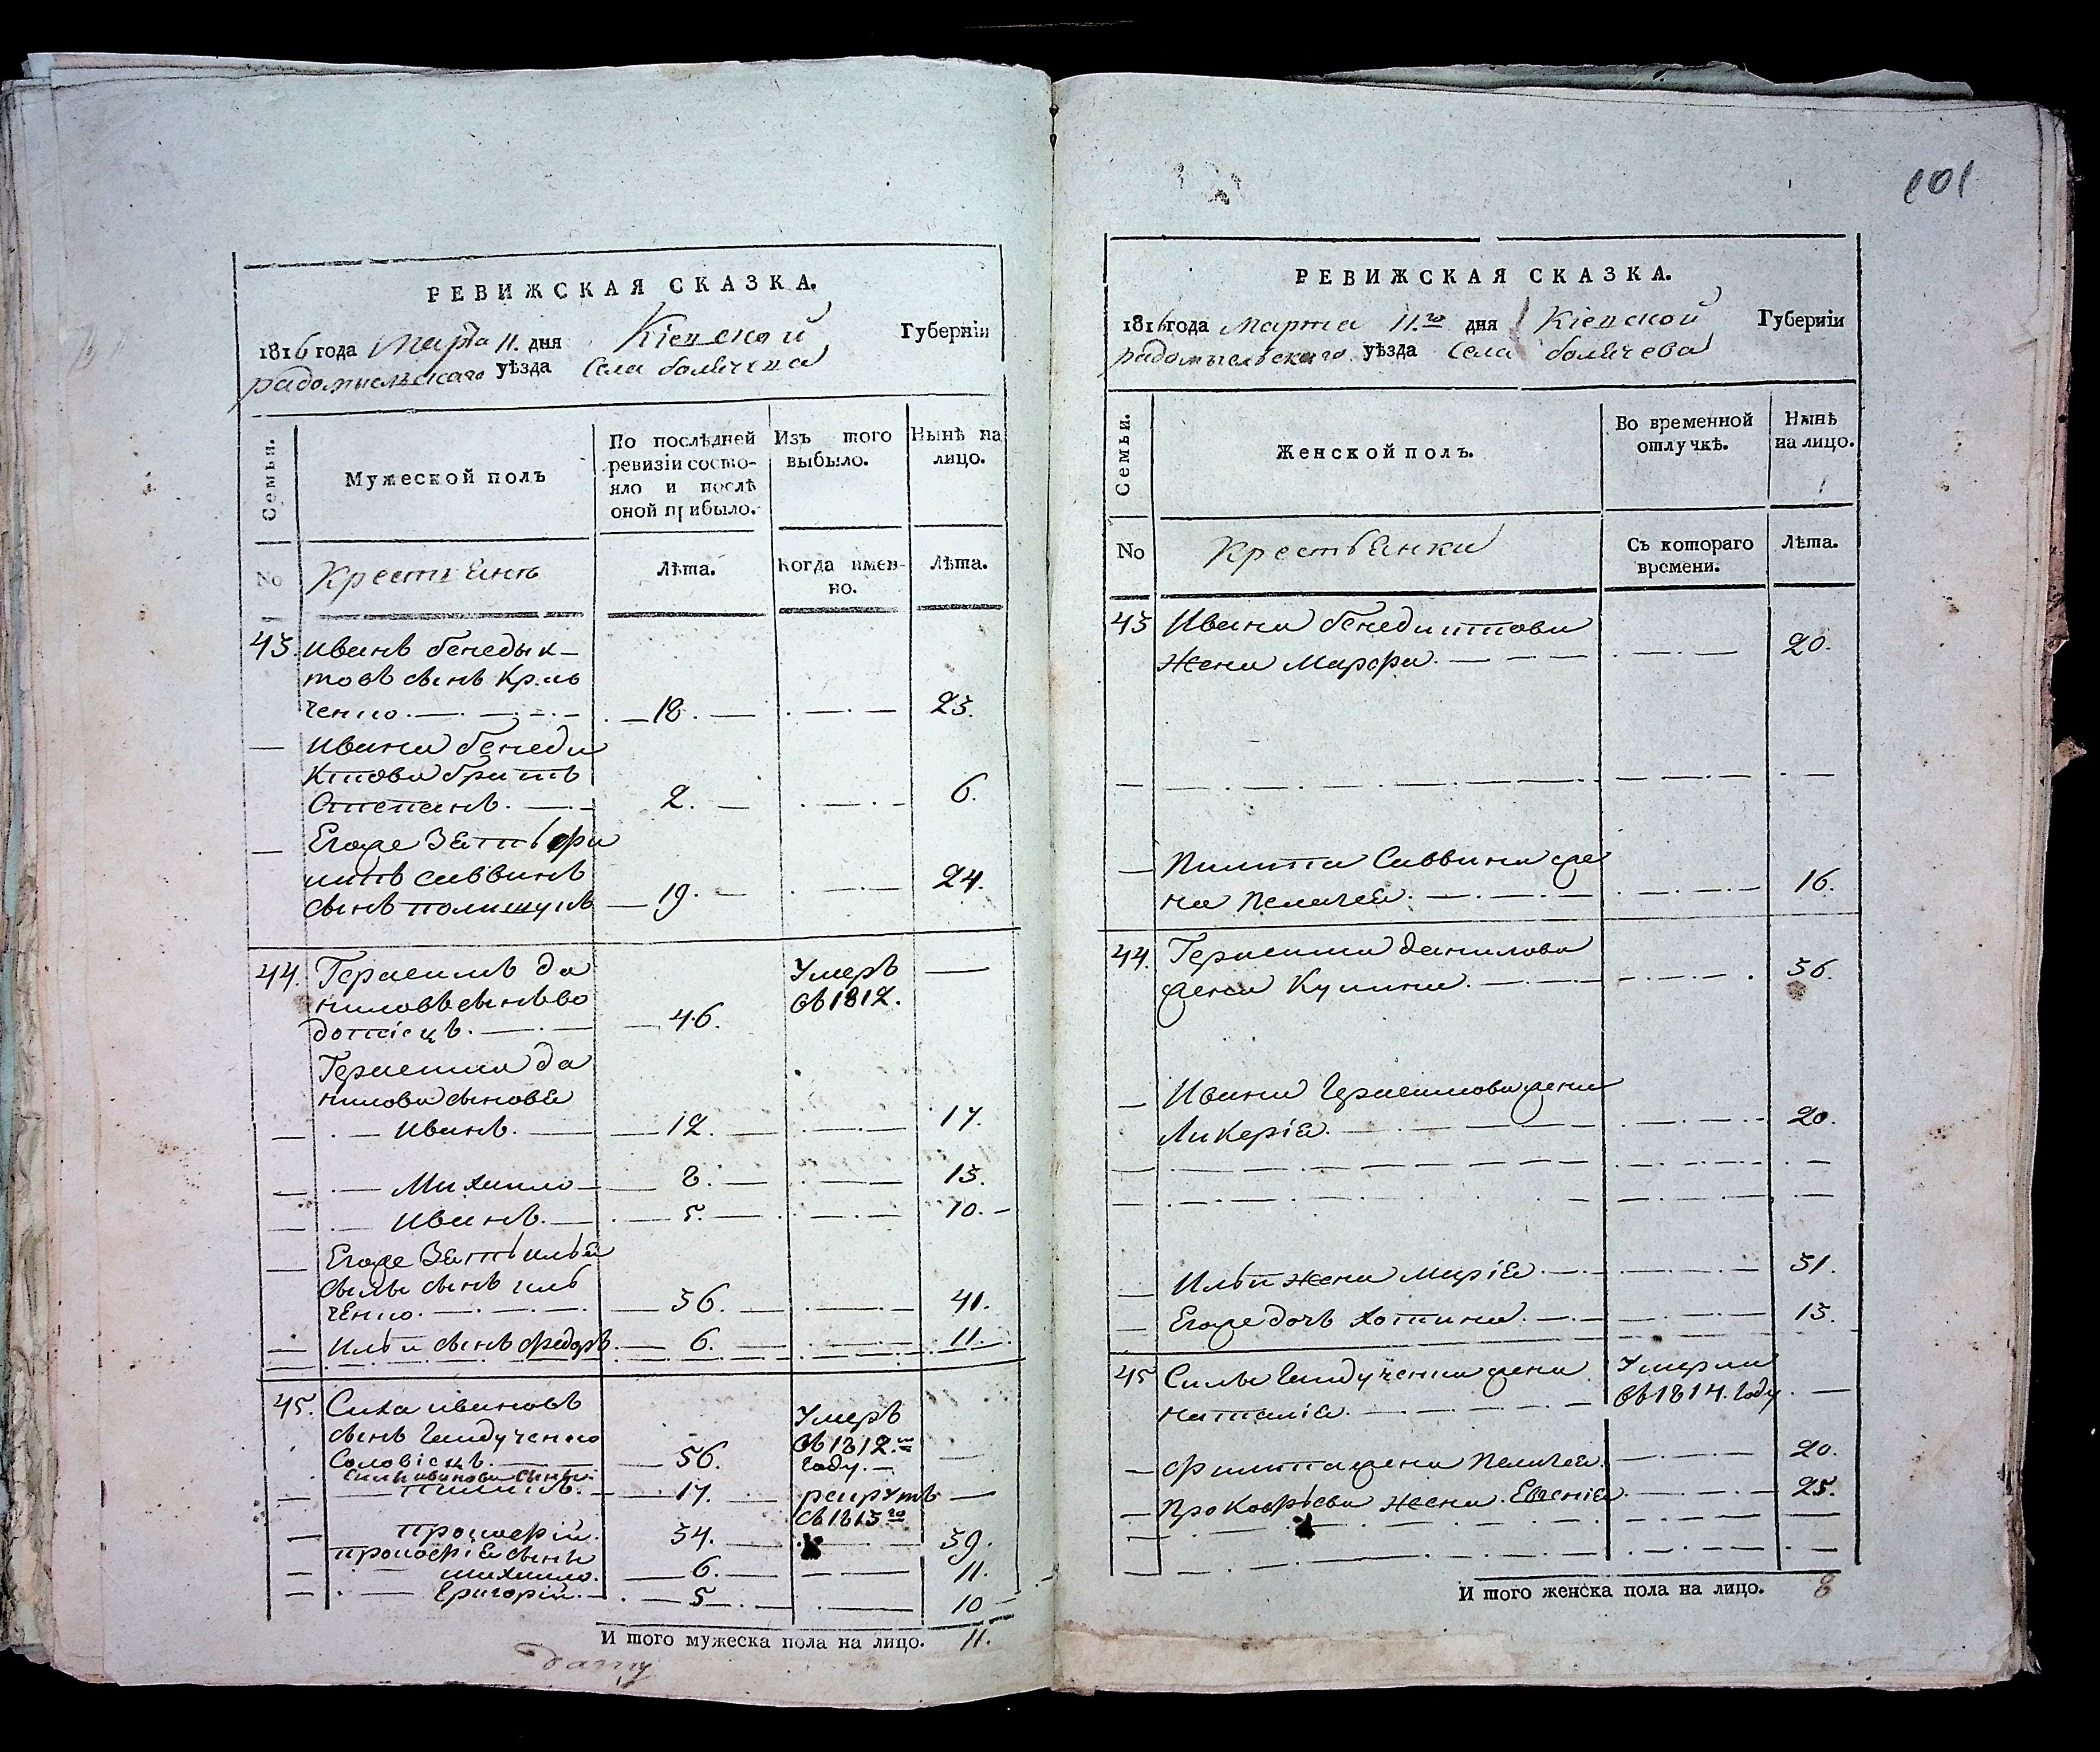 101
РЕВИЖСКАЯ СКАЗКА.
1816 года Марта 11. дня Кіевской Губерніи
радомысльскаго уѣзда Села болячева
Семьи.
Мужеской полъ
По послѣдней ревизіи состо-
яло и послѣ оной прибыло.
Изъ того выбыло.
Нынѣ на лицо.
No
Лѣта.
Когда имен-
но.
Лѣта.
43. Иванъ бенедык-
товъ сынъ
ченко. 18. 23.
Ивана бенеди
ктова братъ
Степанъ. 2. 6.
Егоже Зять
саввинъ
сынъ полищукъ 19. 24.
44. Герасимъ да
ниловъ сынъ во
дотіецъ. 46. Умеръ
въ 1812.
Герасима да
нилова сыновя
Иванъ. 12. 17.
Михайло 8. 13.
Иванъ. 5. 10.
Егоже Зять илья
сынъ
ченко. 36. 41.
Ильи сынъ федоръ 6. 11.
45. Сила ивановъ
сынъ Гайдученко
Соловіецъ. 56. Умеръ
въ 1812.го
году.
Силы иванова сыны
17. рекрутъ
въ 1813го
прокофій. 34. 39.
прокофія сыны
михайло. 6. 11.
Григорій. 5 10
И того мужеска пола на лицо. 11.
РЕВИЖСКАЯ СКАЗКА.
1816 года Марта 11.го дня Кіевской Губерніи
радомысльскаго уѣзда Села болячева
Семьи.
Женской полъ.
Во временной отлучкѣ.
Нынѣ на лицо.
No
Съ котораго времени.
Лѣта.
43 Ивана бенедиктова
Жена Марфа. 20.
Саввина же
на Пелагея. 16.
44. Герасима данилова
жена Кулина. 36.
Ивана Герасимова жена
Ликерія. 20.
Ильи жена Марія 31.
Егоже дочь 13.
45 Силы Гайдученка жена Умерла
наталія. въ 1814. Году
жена Пелагея. 20.
Прокофіева жена Евгенія 25.
И того женска пола на лицо. 8